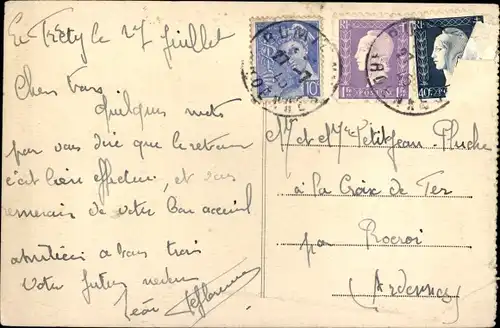 le 27 Juillet
Chers tous
Quelques mots
pour vous dire que le retour
c'est bien effectué, et vous
remercier de votre bon accueil
à vous trois
Votre futur neveu
Jean
RUM
27-7
10c
RF
1F
POSTES
RF
40c
M et Mme Petitjean Pluche
à la Croix de Fer
par Rocroi
(Ardennes)